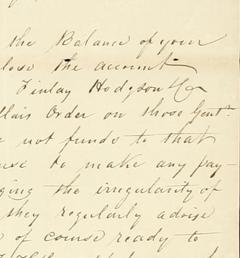 the Balance of your
close the account
Finlay Hodgson & Co
Order on those Gentn
not funds to that
to make any pay-
the irregularity of
they regularly advise
of course ready to